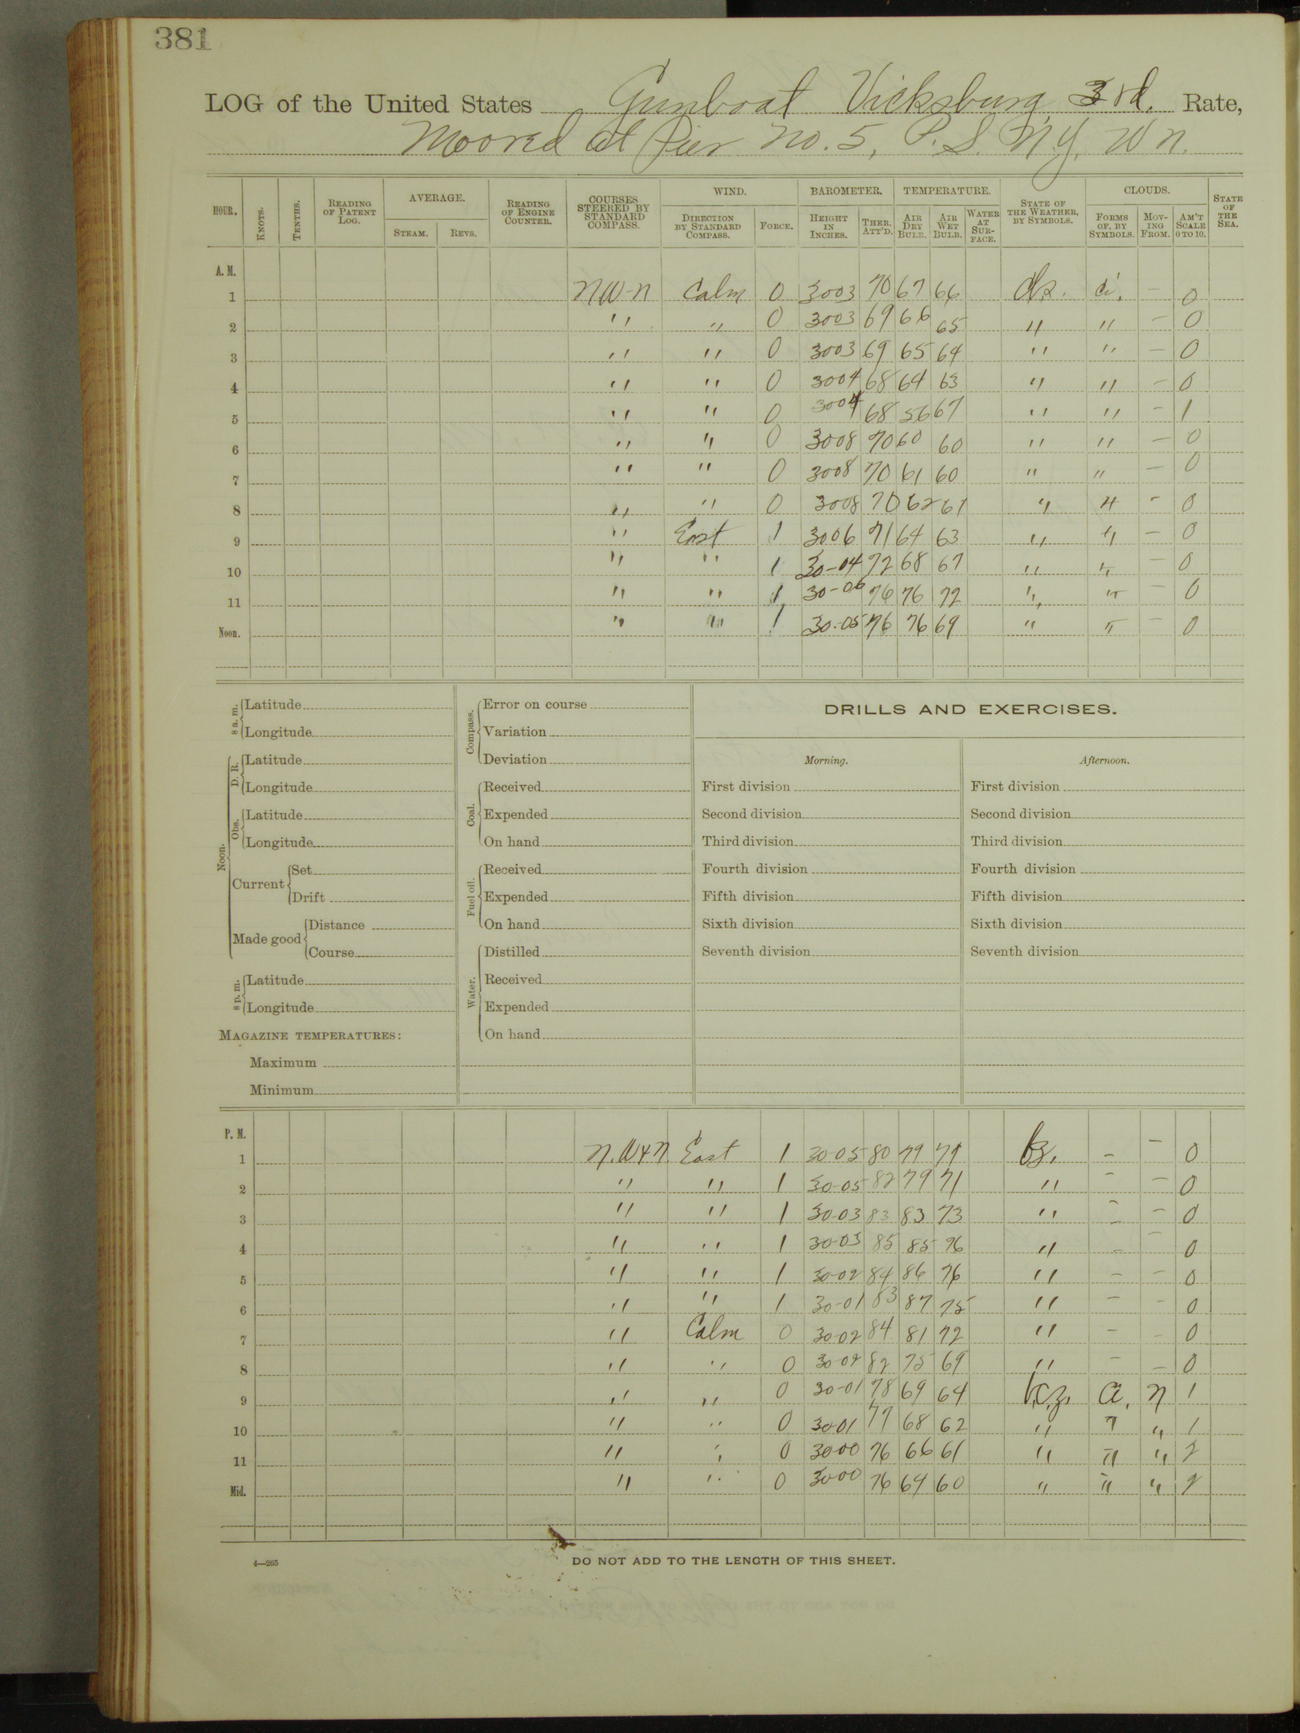 381
LOG of the United States Gunboat Vicksburg 3rd. Rate,
Moored at Pier No. 5, P. S. N.Y. Wn.
HOUR. KNOTS. TENTHS. READING OF PATENT LOG. AVERAGE. STEAM. REVS. READING OF ENGINE COUNTER. COURSES STEERED BY STANDARD COMPASS. WIND. DIRECTION BY STANDARD COMPASS. FORCE. BAROMETER. HEIGHT IN INCHES. THER. ATT'D. TEMPERATURE. AIR DRY BULB. AIR WET BULB. WATER AT SURFACE. STATE OF THE WEATHER, BY SYMBOLS. CLOUDS. FORMS OF, BY SYMBOLS. MOVING FROM. AM'T SCALE 0 TO 10. STATE OF THE SEA.
A. M.
1 NW-N Calm 0 3003 70 67 66 ci. — 0
2 " " 0 3003 69 66 65 " " — 0
3 " " 0 3003 69 65 64 " " — 0
4 " " 0 3004 68 64 63 " " — 0
5 " " 0 3004 68 56 67 " " — 1
6 " " 0 3008 70 60 60 " " — 0
7 " " 0 3008 70 61 60 " " — 0
8 " " 0 3008 70 62 61 " " — 0
9 " East 1 3006 71 64 63 " " — 0
10 " " 1 30-04 72 68 67 " " — 0
11 " " 1 30-06 76 76 72 " " — 0
Noon. " " 1 30-05 76 76 69 " " — 0
8 a. m. Latitude
Longitude
Noon. D. R. Latitude
Longitude
Obs. Latitude
Longitude
Current Set
Drift
Made good Distance
Course
8 p. m. Latitude
Longitude
MAGAZINE TEMPERATURES:
Maximum
Minimum
Compass. Error on course
Variation
Deviation
Coal. Received
Expended
On hand
Fuel oil. Received
Expended
On hand
Water. Distilled
Received
Expended
On hand
DRILLS AND EXERCISES.
Morning.
First division
Second division
Third division
Fourth division
Fifth division
Sixth division
Seventh division
Afternoon.
First division
Second division
Third division
Fourth division
Fifth division
Sixth division
Seventh division
P. M.
1 N.WxN East 1 30-05 80 79 71 bz. – — 0
2 " " 1 30-05 82 79 71 " – — 0
3 " " 1 30-03 83 83 73 " – — 0
4 " " 1 30-03 85 85 76 " – — 0
5 " " 1 30-02 84 86 76 " – — 0
6 " " 1 30-01 83 87 75 " – — 0
7 " Calm 0 30-02 84 81 72 " – — 0
8 " " 0 30-02 82 75 69 " – — 0
9 " " 0 30-01 78 69 64 bcz. Ci. N 1
10 " " 0 30-01 77 68 62 " " " 1
11 " " 0 30-00 76 66 61 " " " 2
Mid. " " 0 30-00 76 64 60 " " " 2
4—265
DO NOT ADD TO THE LENGTH OF THIS SHEET.